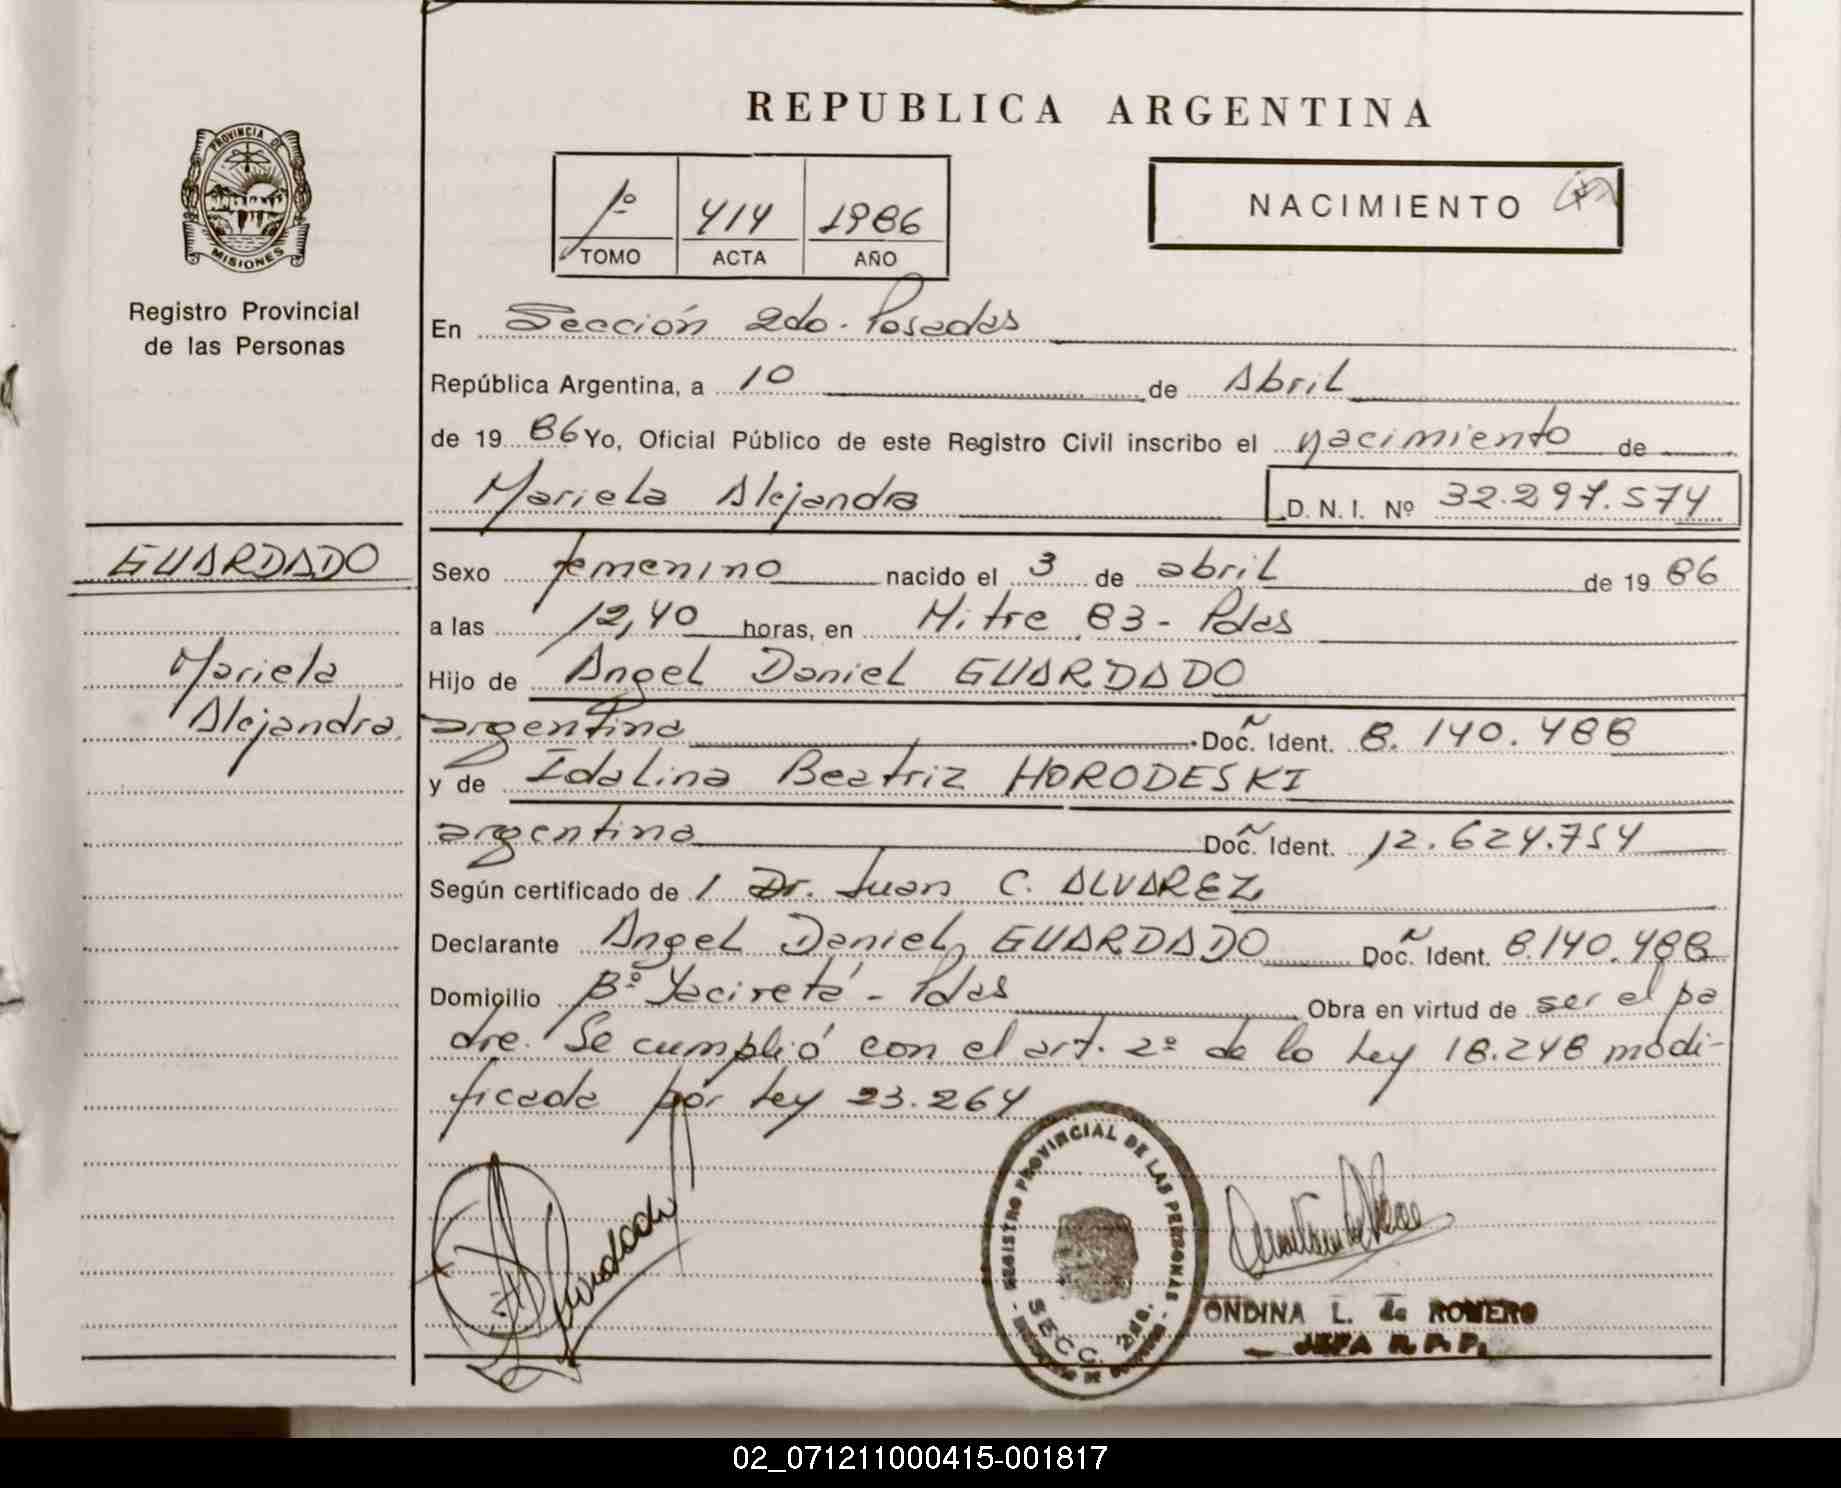 REPUBLICA ARGENTINA
PROVINCIA DE
MISIONES
Registro Provincial
de las Personas
1º 414 1986
TOMO ACTA AÑO
NACIMIENTO
En Sección 2do. Posadas
República Argentina, a 10 de Abril
de 19 86 Yo, Oficial Público de este Registro Civil inscribo el nacimiento de
Mariela Alejandra D. N. I. Nº 32.297.574
GUARDADO
Mariela
Alejandra
Sexo femenino nacido el 3 de abril de 19 86
a las 12,40 horas, en Mitre 83 - Pdas
Hijo de Angel Daniel GUARDADO
argentina Doc. Ident. 8.140.488
y de Idalina Beatriz HORODESKI
argentina Doc. Ident. 12.624.754
Según certificado de / Dr. Juan C. ALVAREZ
Declarante Angel Daniel GUARDADO Doc. Ident. 8.140.488
Domicilio Bº Yaciretá - Pdas Obra en virtud de ser el pa
dre. Se cumplió con el art. 2º de la Ley 18.248 modi-
ficada por Ley 23.264
Guardado
REGISTRO PROVINCIAL DE LAS PERSONAS
SECC. 2da.
ONDINA L. de ROMERO
JEFA R.P.P.
02_071211000415-001817